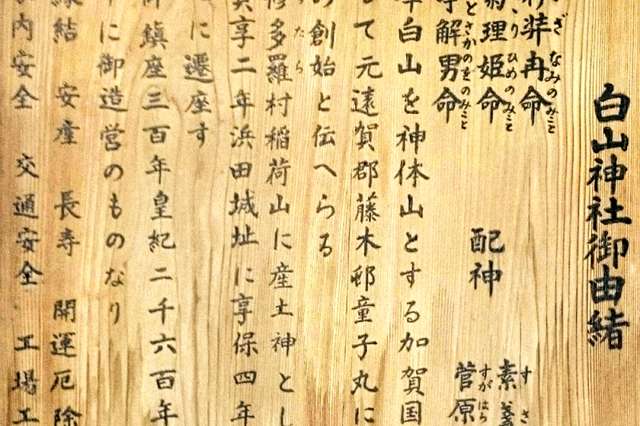 白山神社御由緒
弉冉命 なみのみこと
理姫命 ひめのみこと
解男命 さかのをのみこと
配神
素 すさ
菅原 すがはら
白山を神体山とする加賀国
て元遠賀郡藤木邨童子丸に
の創始と伝へらる
多羅村稲荷山に産土神とし
享二年浜田城址に享保四年
に遷座す
鎮座三百年皇紀二千六百年
に御造営のものなり
縁結 安産 長寿 開運厄除
内安全 交通安全 工場工